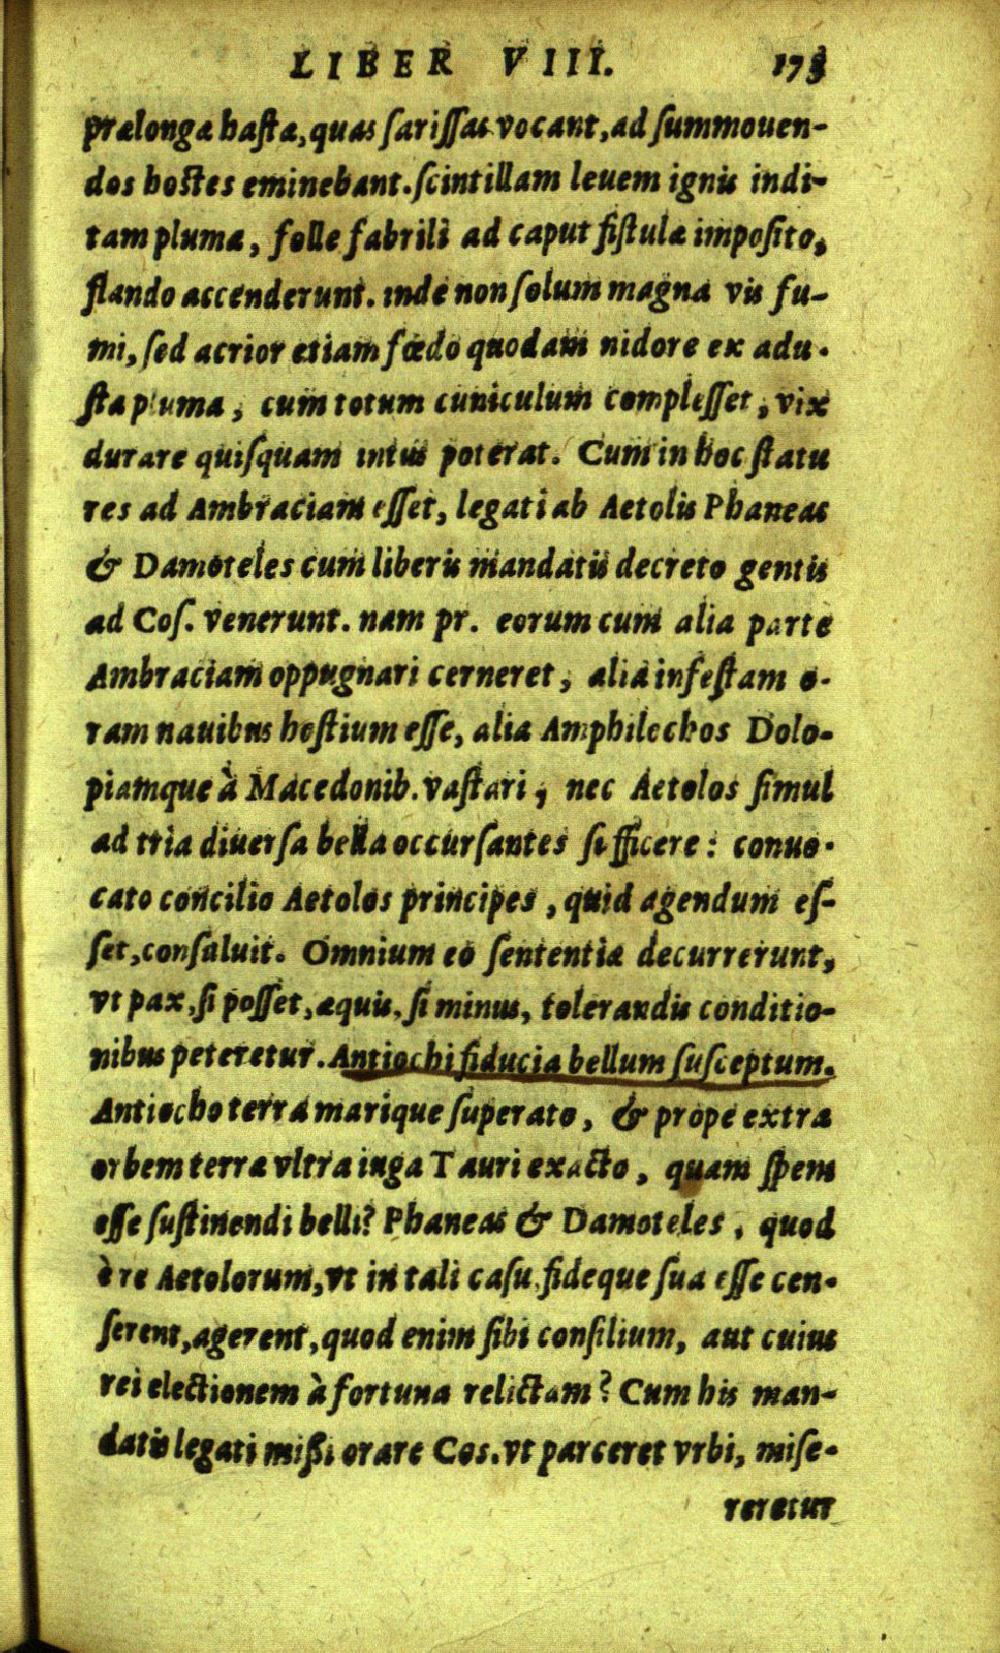 LIBER VIII. 173
prælongæ hastæ, quas sarissas vocant, ad summouen-
dos hostes eminebant. scintillam leuem ignis indi-
tam plumæ, folle fabrili ad caput fistulæ imposito,
flando accenderunt. inde non solum magna vis fu-
mi, sed acrior etiam fœdo quodam nidore ex adu-
sta pluma, cum totum cuniculum complesset, vix
durare quisquam intus poterat. Cum in hoc statu
res ad Ambraciam esset, legati ab Aetolis Phaneas
& Damoteles cum liberis mandatis decreto gentis
ad Cos. venerunt. nam pr. eorum cum alia parte
Ambraciam oppugnari cerneret, alia infestam o-
ram nauibus hostium esse, alia Amphilochos Dolo-
piamque à Macedonib. vastari, nec Aetolos simul
ad tria diuersa bella occursantes sufficere: conuo-
cato concilio Aetolos principes, quid agendum es-
set, consuluit. Omnium eò sententiæ decurrerunt,
vt pax, si posset, æquis, si minus, tolerandis conditio-
nibus peteretur. Antiochi fiducia bellum susceptum.
Antiocho terra marique superato, & prope extra
orbem terræ vltra iuga Tauri exacto, quam spem
esse sustinendi belli? Phaneas & Damoteles, quod
è re Aetolorum, vt in tali casu, fideque sua esse cen-
serent, agerent, quod enim sibi consilium, aut cuius
rei electionem à fortuna relictam? Cum his man-
datis legati missi orare Cos. vt parceret vrbi, mise-
reretur